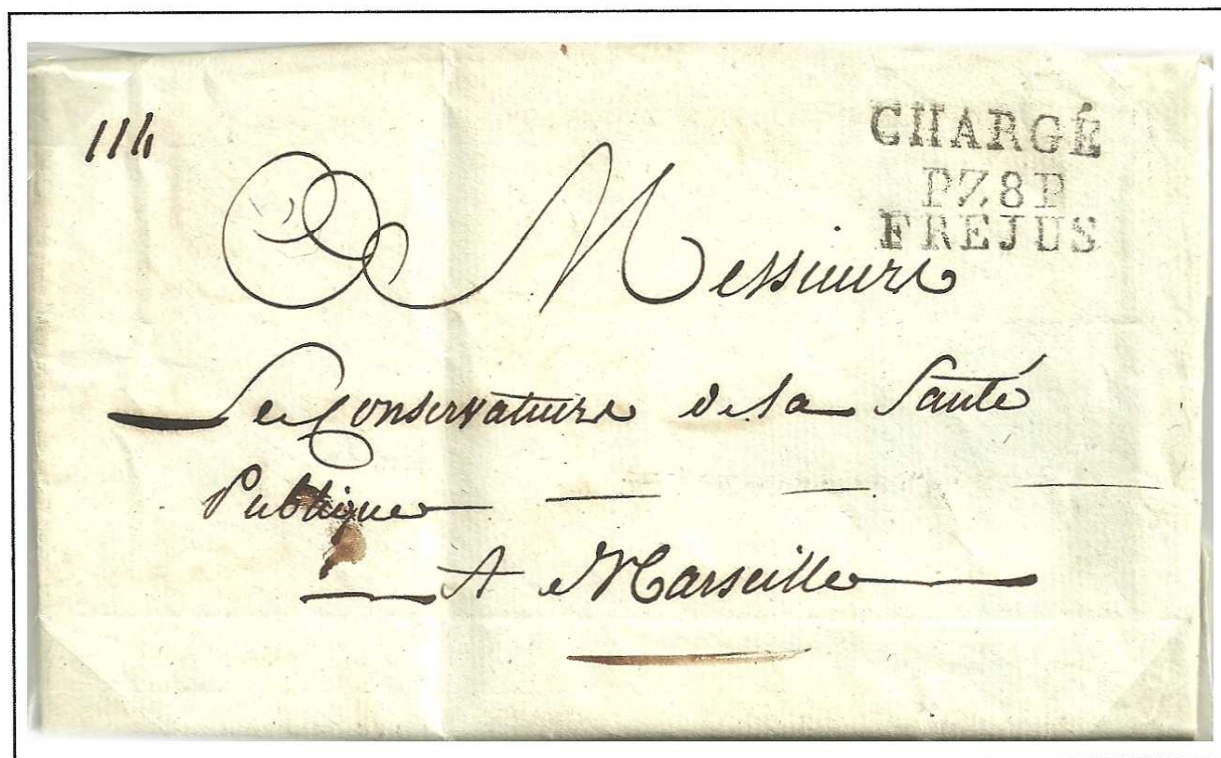 114
CHARGÉ
P.78.P
FREJUS
Messieurs
Les Conservateurs de la Santé
Publique
A Marseille